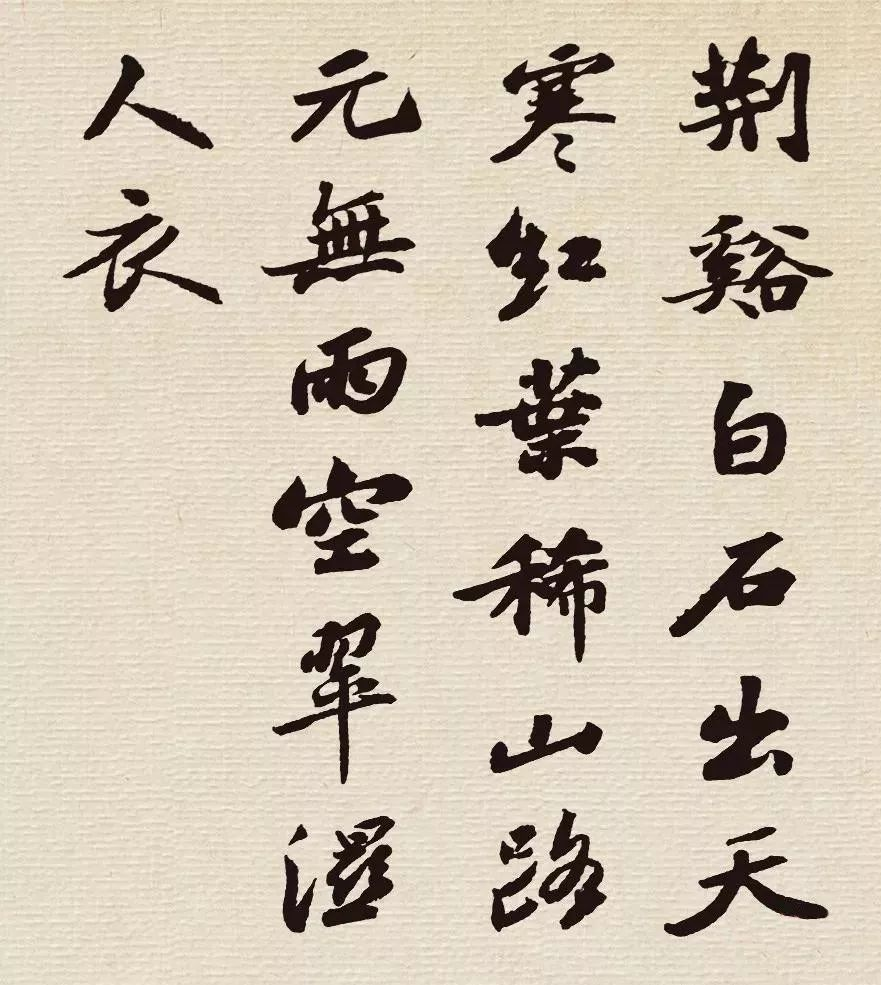 荆谿白石出天
寒红葉稀山路
元無雨空翠濕
人衣